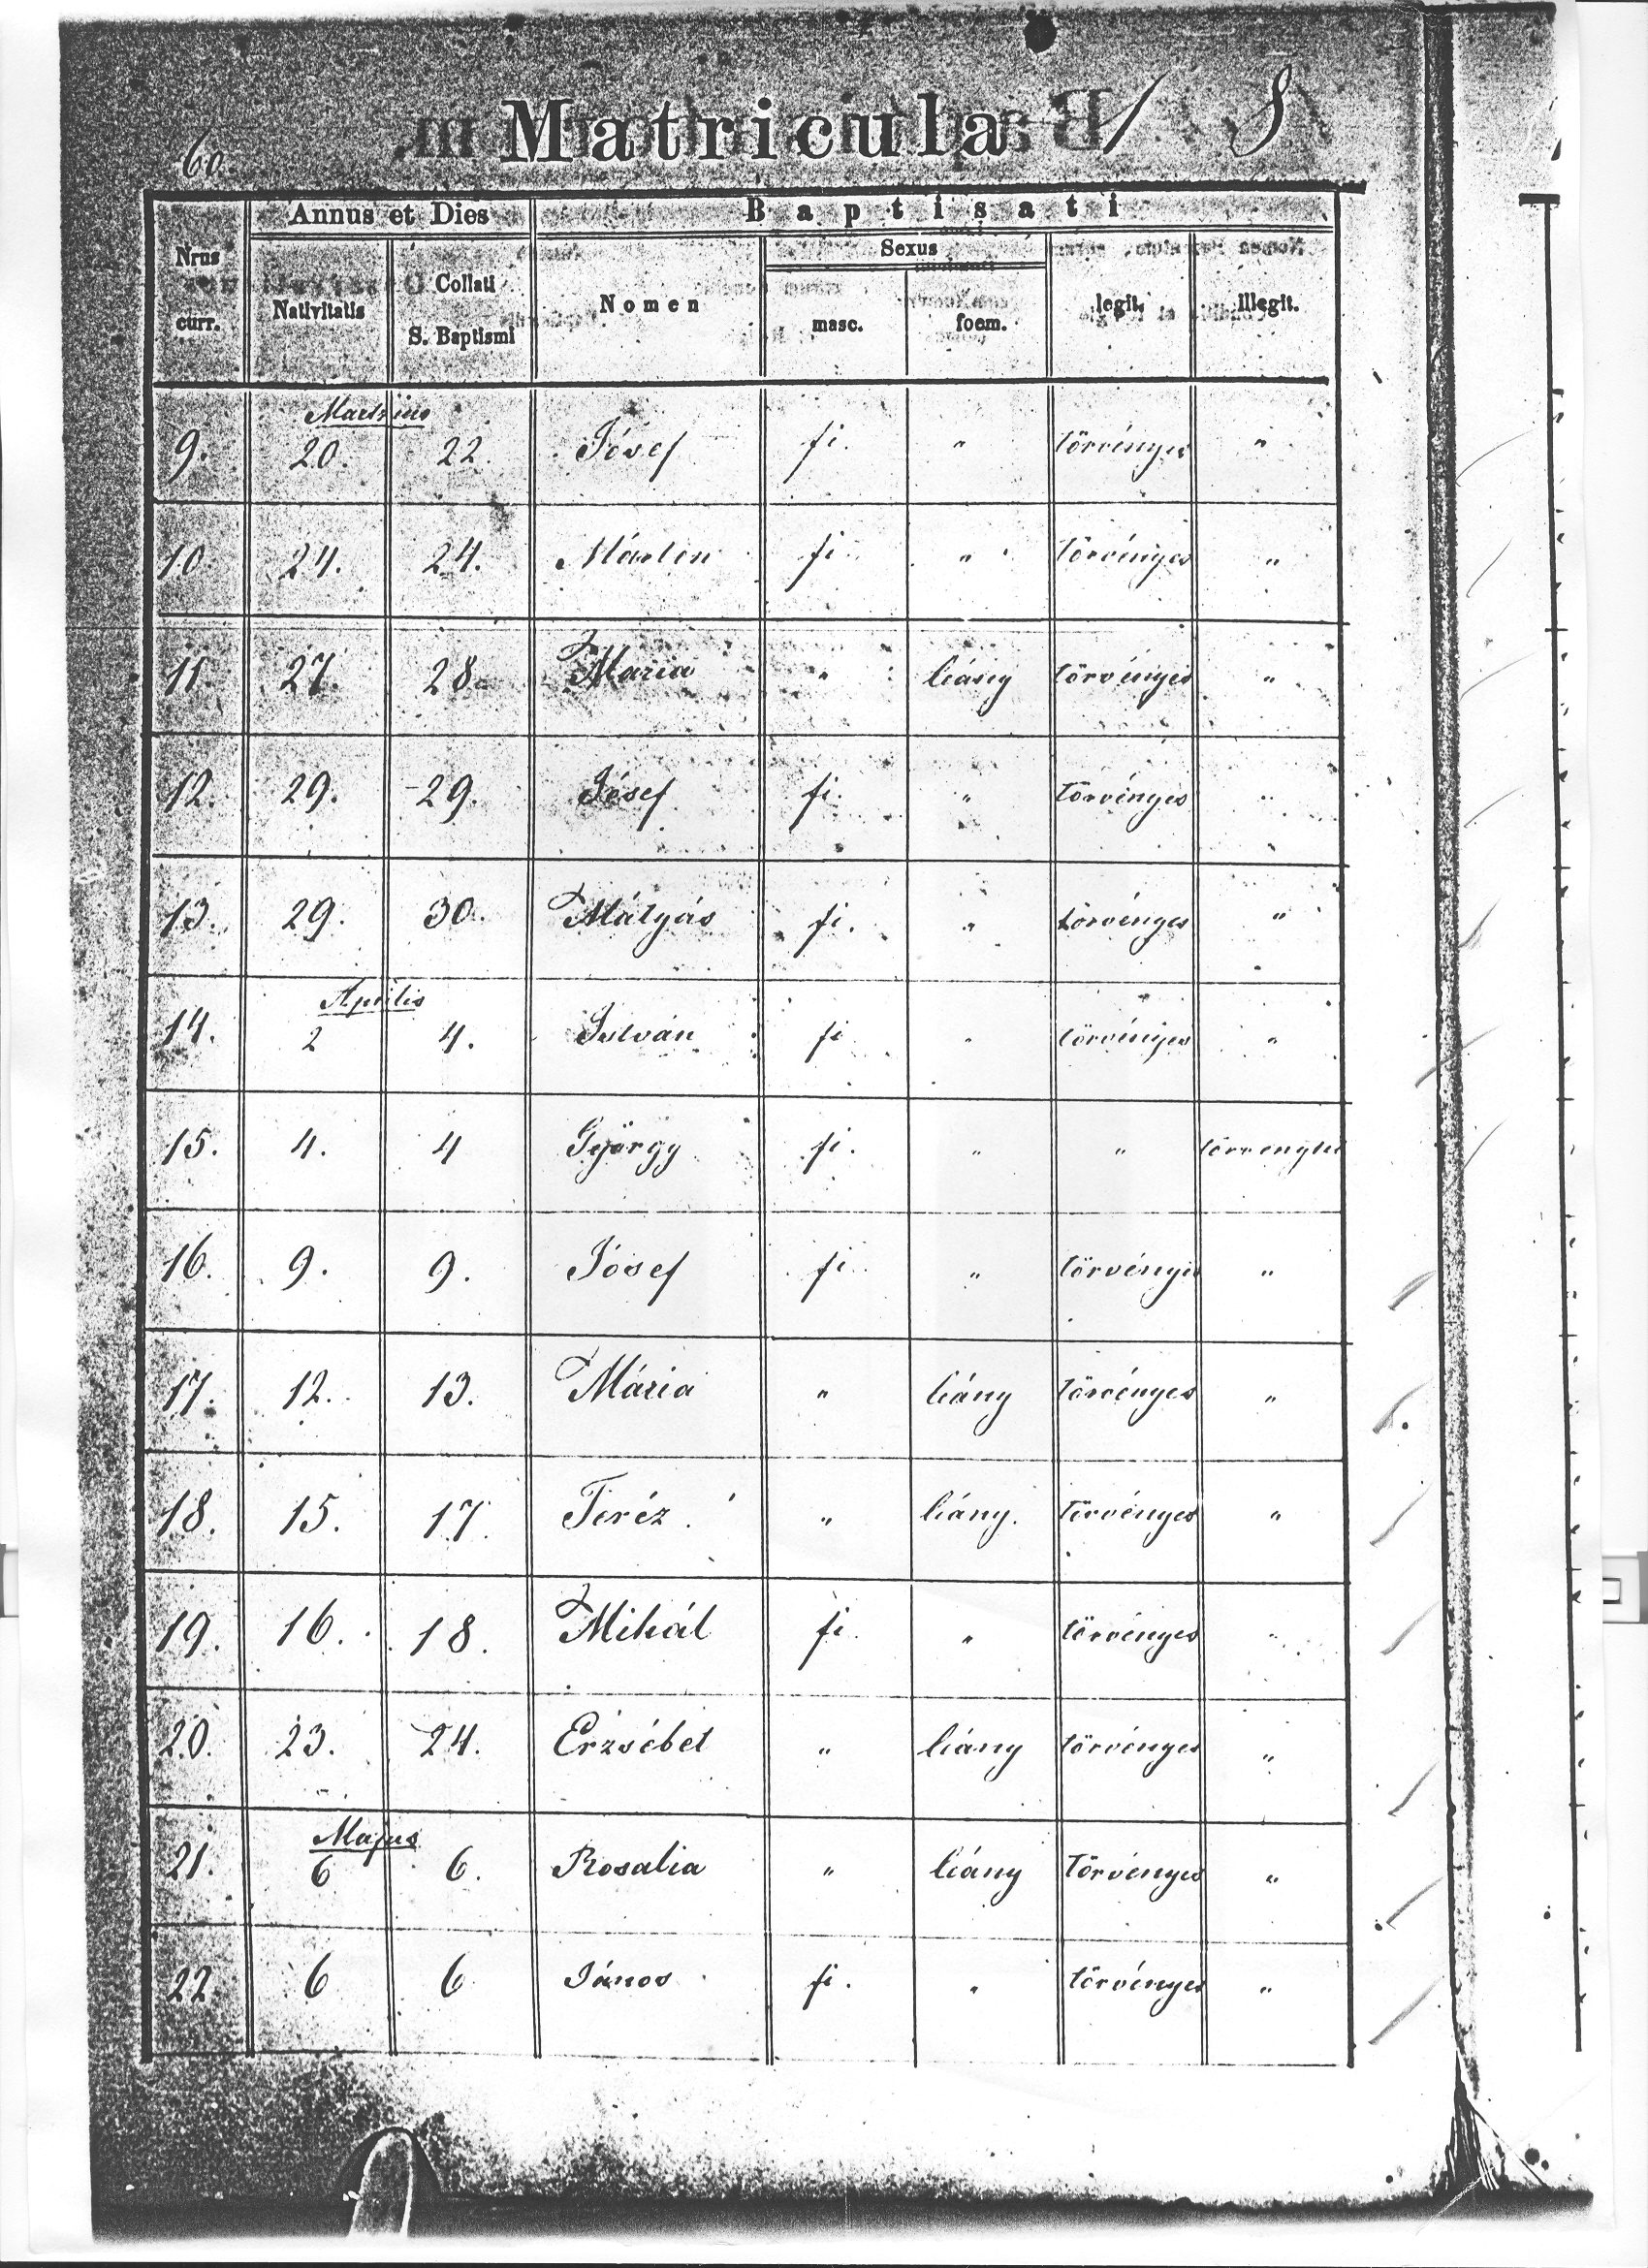 60.
Matricula
18
Nrus curr.
Annus et Dies
Baptisati
Nativitatis
Collati S. Baptismi
Nomen
Sexus
masc.
foem.
legit.
Illegit.
Martzius
9. 20. 22. Jósef fi. " törvényes "
10 24. 24. Márton fi. " törvényes "
11. 27. 28. Maria " leány törvényes "
12. 29. 29. Jósef fi. " törvényes "
13. 29. 30. Mátyás fi. " törvényes "
Aprilis
14. 2 4. István fi " törvényes "
15. 4. 4 György fi. " "
16. 9. 9. Jósef fi " törvényes "
17. 12. 13. Mária " leány törvényes "
18. 15. 17. Teréz " leány. törvényes "
19. 16. 18. Mihál fi " törvényes "
20. 23. 24. Erzsébet " leány törvényes "
Majus
21. 6 6. Rosalia " leány törvényes "
22 6 6 János fi. " törvényes "